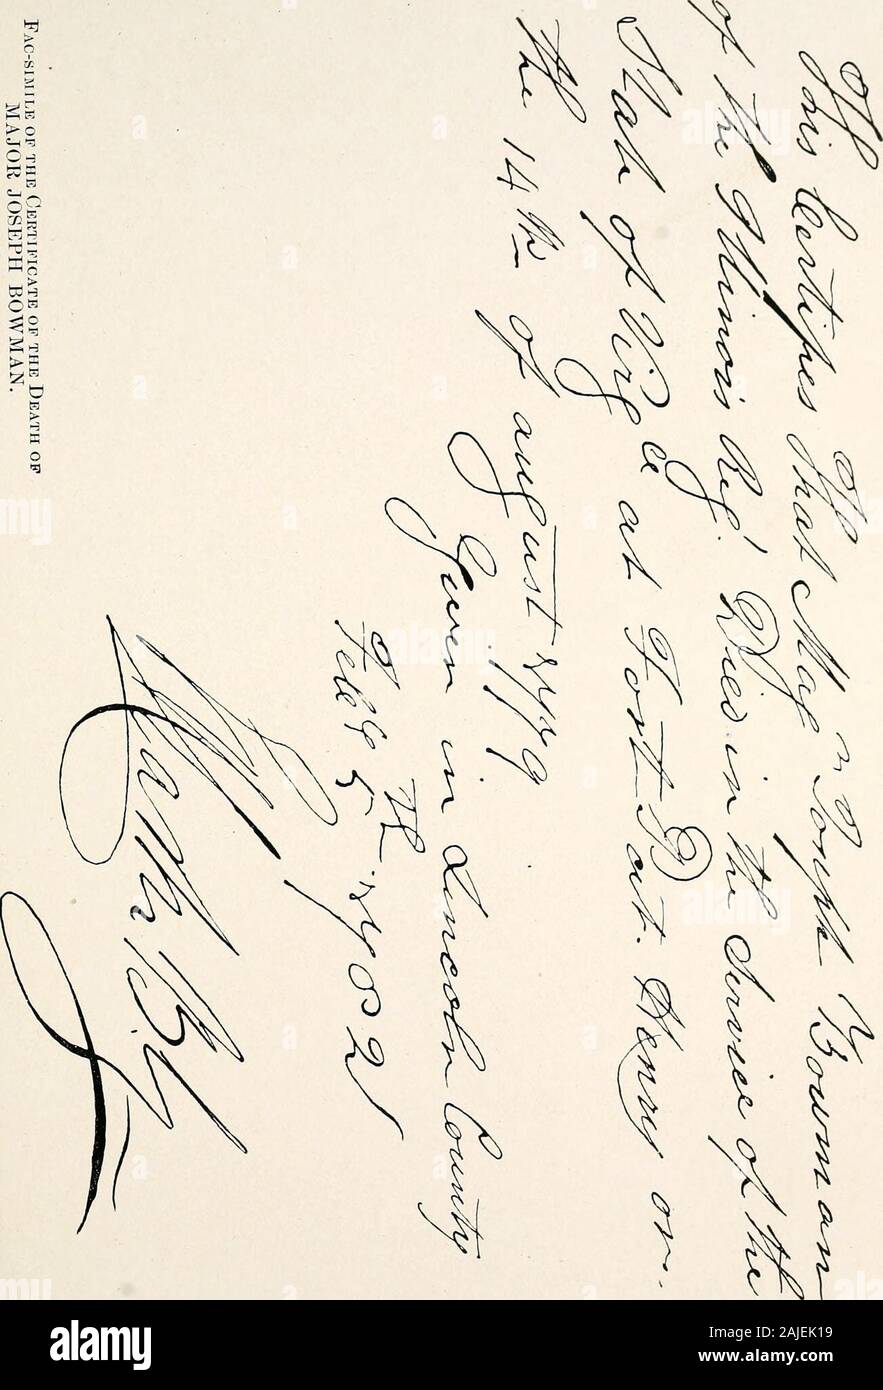 This Certifies that Maj.r Joseph Bowman
of the Illinois Reg.t Died in the Service of the
State of Virg.a at Fort Pat. Henry on
the 14th of august 1779
Given in Lincoln County
Feb.y 5th 1782
FAC-SIMILE OF THE CERTIFICATE OF THE DEATH OF
MAJOR JOSEPH BOWMAN.
alamy
Image ID: 2AJEK19
www.alamy.com